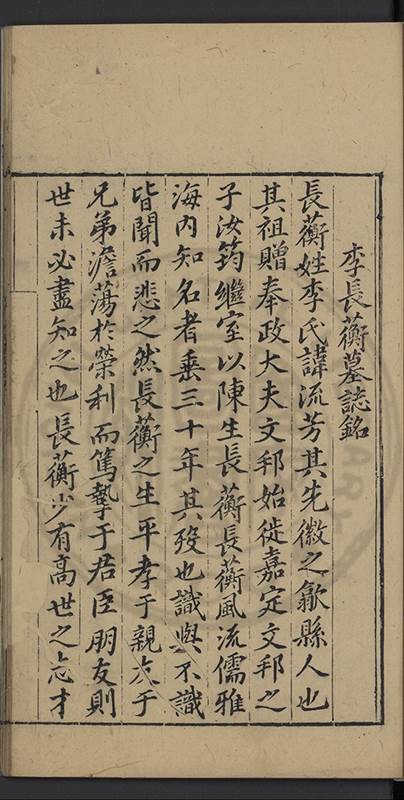 李長蘅墓誌銘
長蘅姓李氏諱流芳其先徽之歙縣人也
其祖贈奉政大夫文邦始徙嘉定文邦之
子汝筠繼室以陳生長蘅長蘅風流儒雅
海內知名者垂三十年其歿也識與不識
皆聞而悲之然長蘅之生平孝于親友于
兄弟澹蕩於榮利而篤摯于君臣朋友則
世未必盡知之也長蘅少有高世之志才